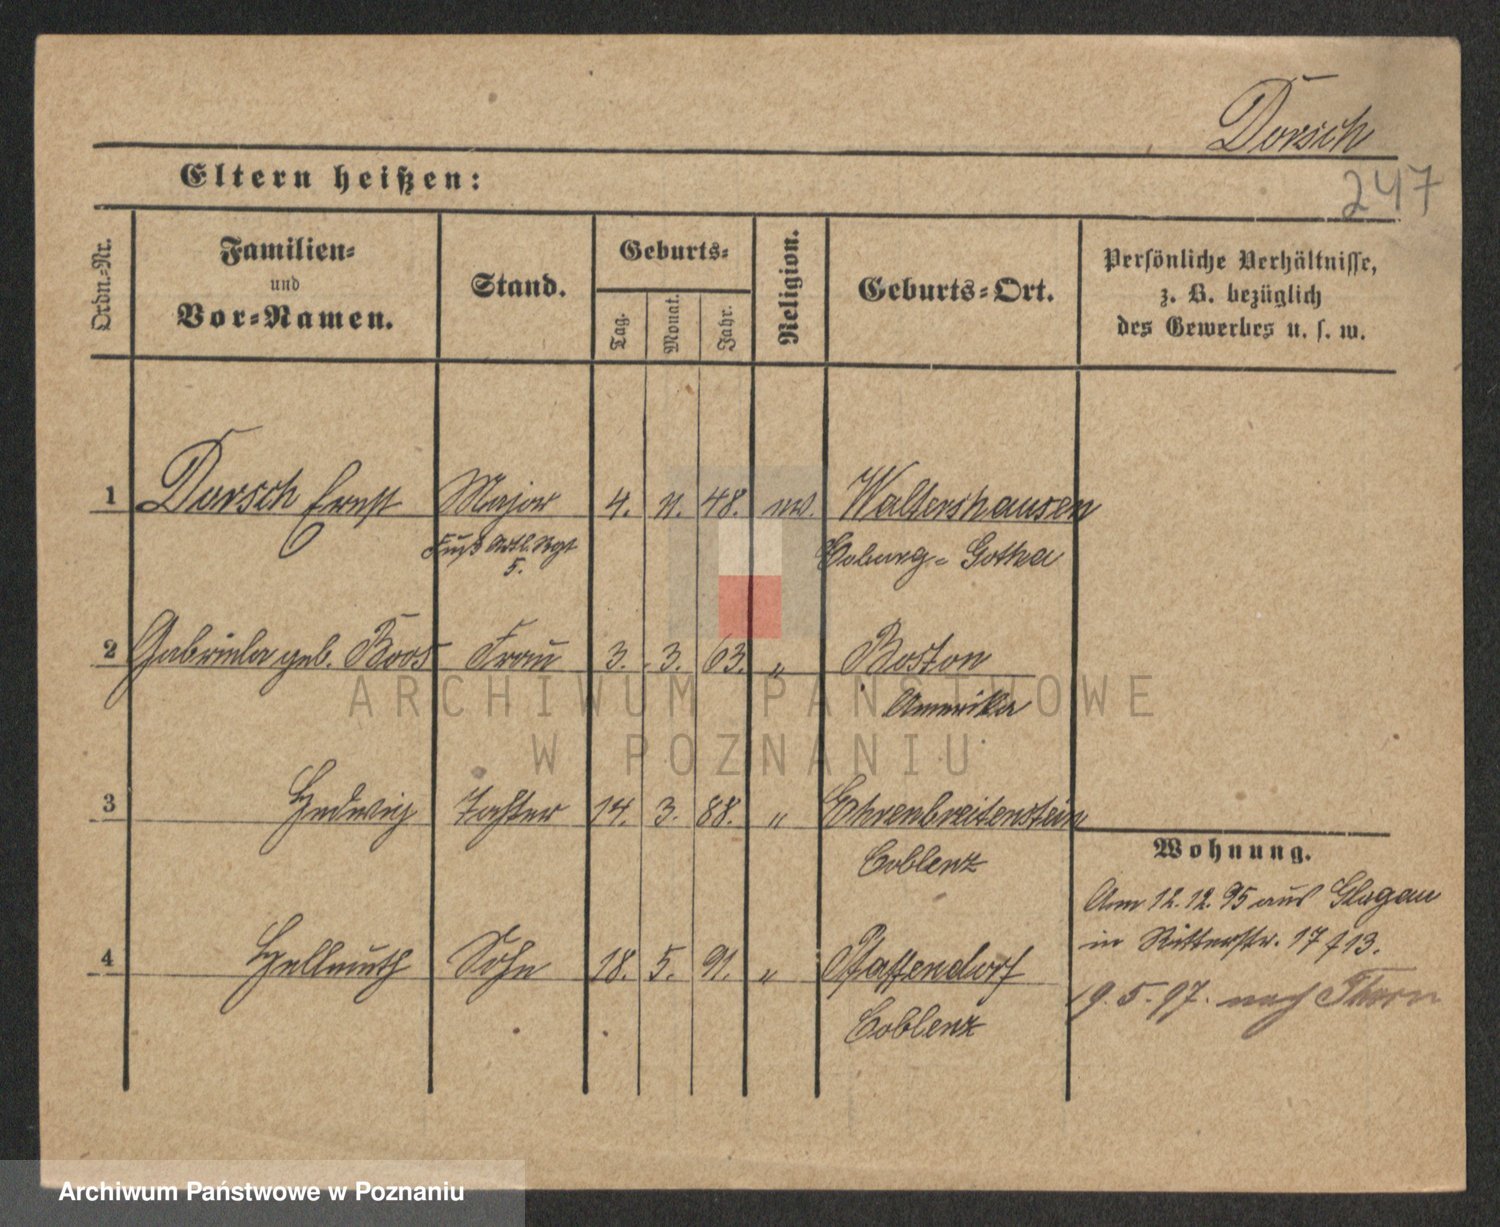 Dorsch
247
Eltern heißen:
Ordn.-Nr.
Familien-
und
Vor-Namen.
Stand.
Geburts-
Tag.
Monat.
Jahr.
Religion.
Geburts-Ort.
Persönliche Verhältnisse,
z. B. bezüglich
des Gewerbes u. s. w.
1 Dorsch Ernst Major 4. 11. 48. ev. Waltershausen
Fuß Artl. Rgt Coburg-Gotha
5.
2 Gabriela geb. Boos Frau 3. 3. 63. " Boston
Amerika
3 Hedwig Tochter 14. 3. 88. " Ehrenbreitenstein
Coblenz
4 Hellmuth Sohn 18. 5. 91. " Pfaffendorf
Coblenz
Wohnung.
Am 12.12.95 aus Glogau
in Ritterstr. 17 / 13.
19.5.97. nach Thorn
ARCHIWUM PAŃSTWOWE
W POZNANIU
Archiwum Państwowe w Poznaniu